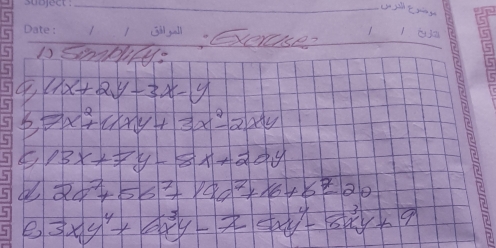 Subject:
Date: / / الموافق : Exercise: / / التاريخ
1) Simplify:
a, 4x+2y-3x-y
b, 7x²+4xy+3x²-2xy
c, 13x+7y-8x+20y
d, 2a²+5b²+10a²+16+b²-20
e, 3xy⁴+6x³y-7-5xy⁴-5x³y+9